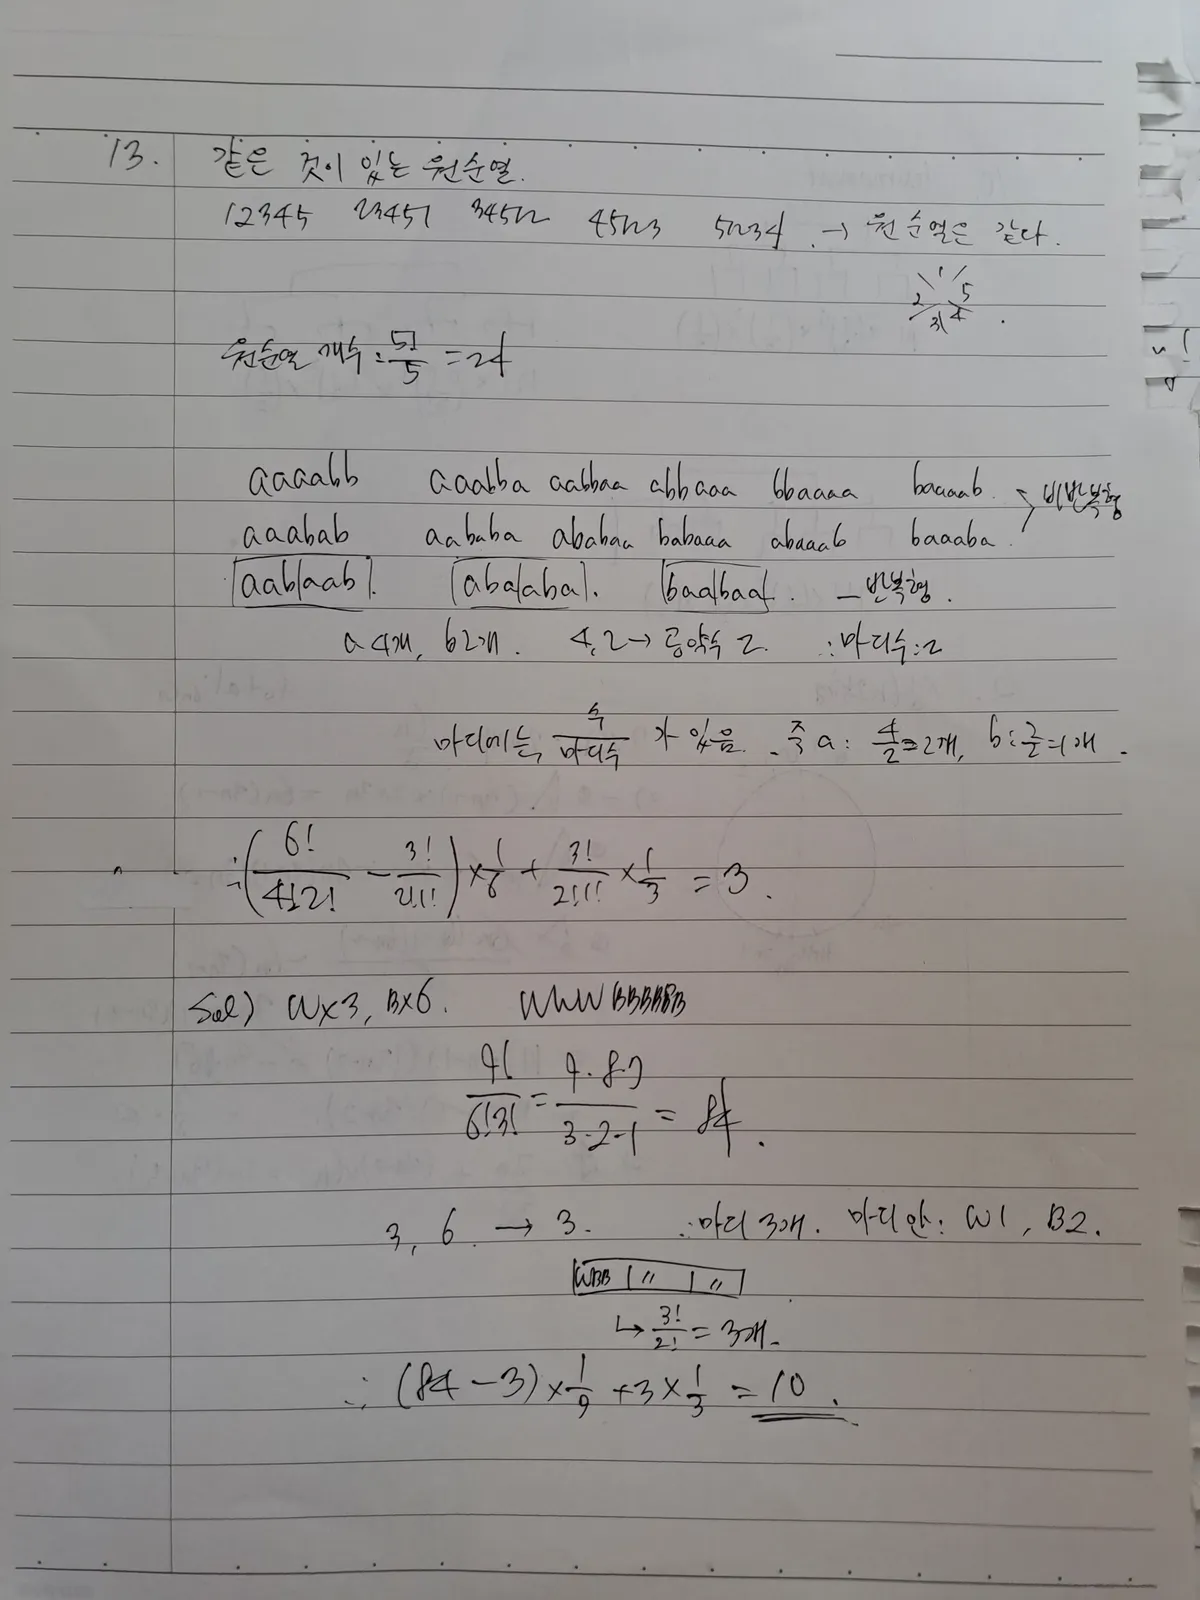 13. 같은 것이 있는 원순열.
12345 23451 34512 45123 51234 . → 원순열은 같다.
1 2 5 3 4 .
원순열 개수 : 5!/5 = 24
aaaabb aaabba aabbaa abbaaa bbaaaa baaaab. → 비반복형
aaabab aababa ababaa babaaa abaaab baaaba.
|aab|aab|. |aba|aba|. |baa|baa|. – 반복형.
a 4개, b 2개. 4, 2 → 공약수 2. ∴ 마디수 : 2
마디에는 수/마디수 가 있음. 즉 a : 4/2 = 2개, b : 2/2 = 1개.
∴ (6!/4!2! - 3!/2!1!) × 1/6 + 3!/2!1! × 1/3 = 3.
Sol) W×3, B×6. WWWBBBBBB
9!/6!3! = 9·8·7/3·2·1 = 84.
3, 6 → 3. ∴ 마디 3개. 마디 안 : W1, B2.
WBB | 〃 | 〃
↳ 3!/2! = 3개.
∴ (84 - 3) × 1/9 + 3 × 1/3 = 10.